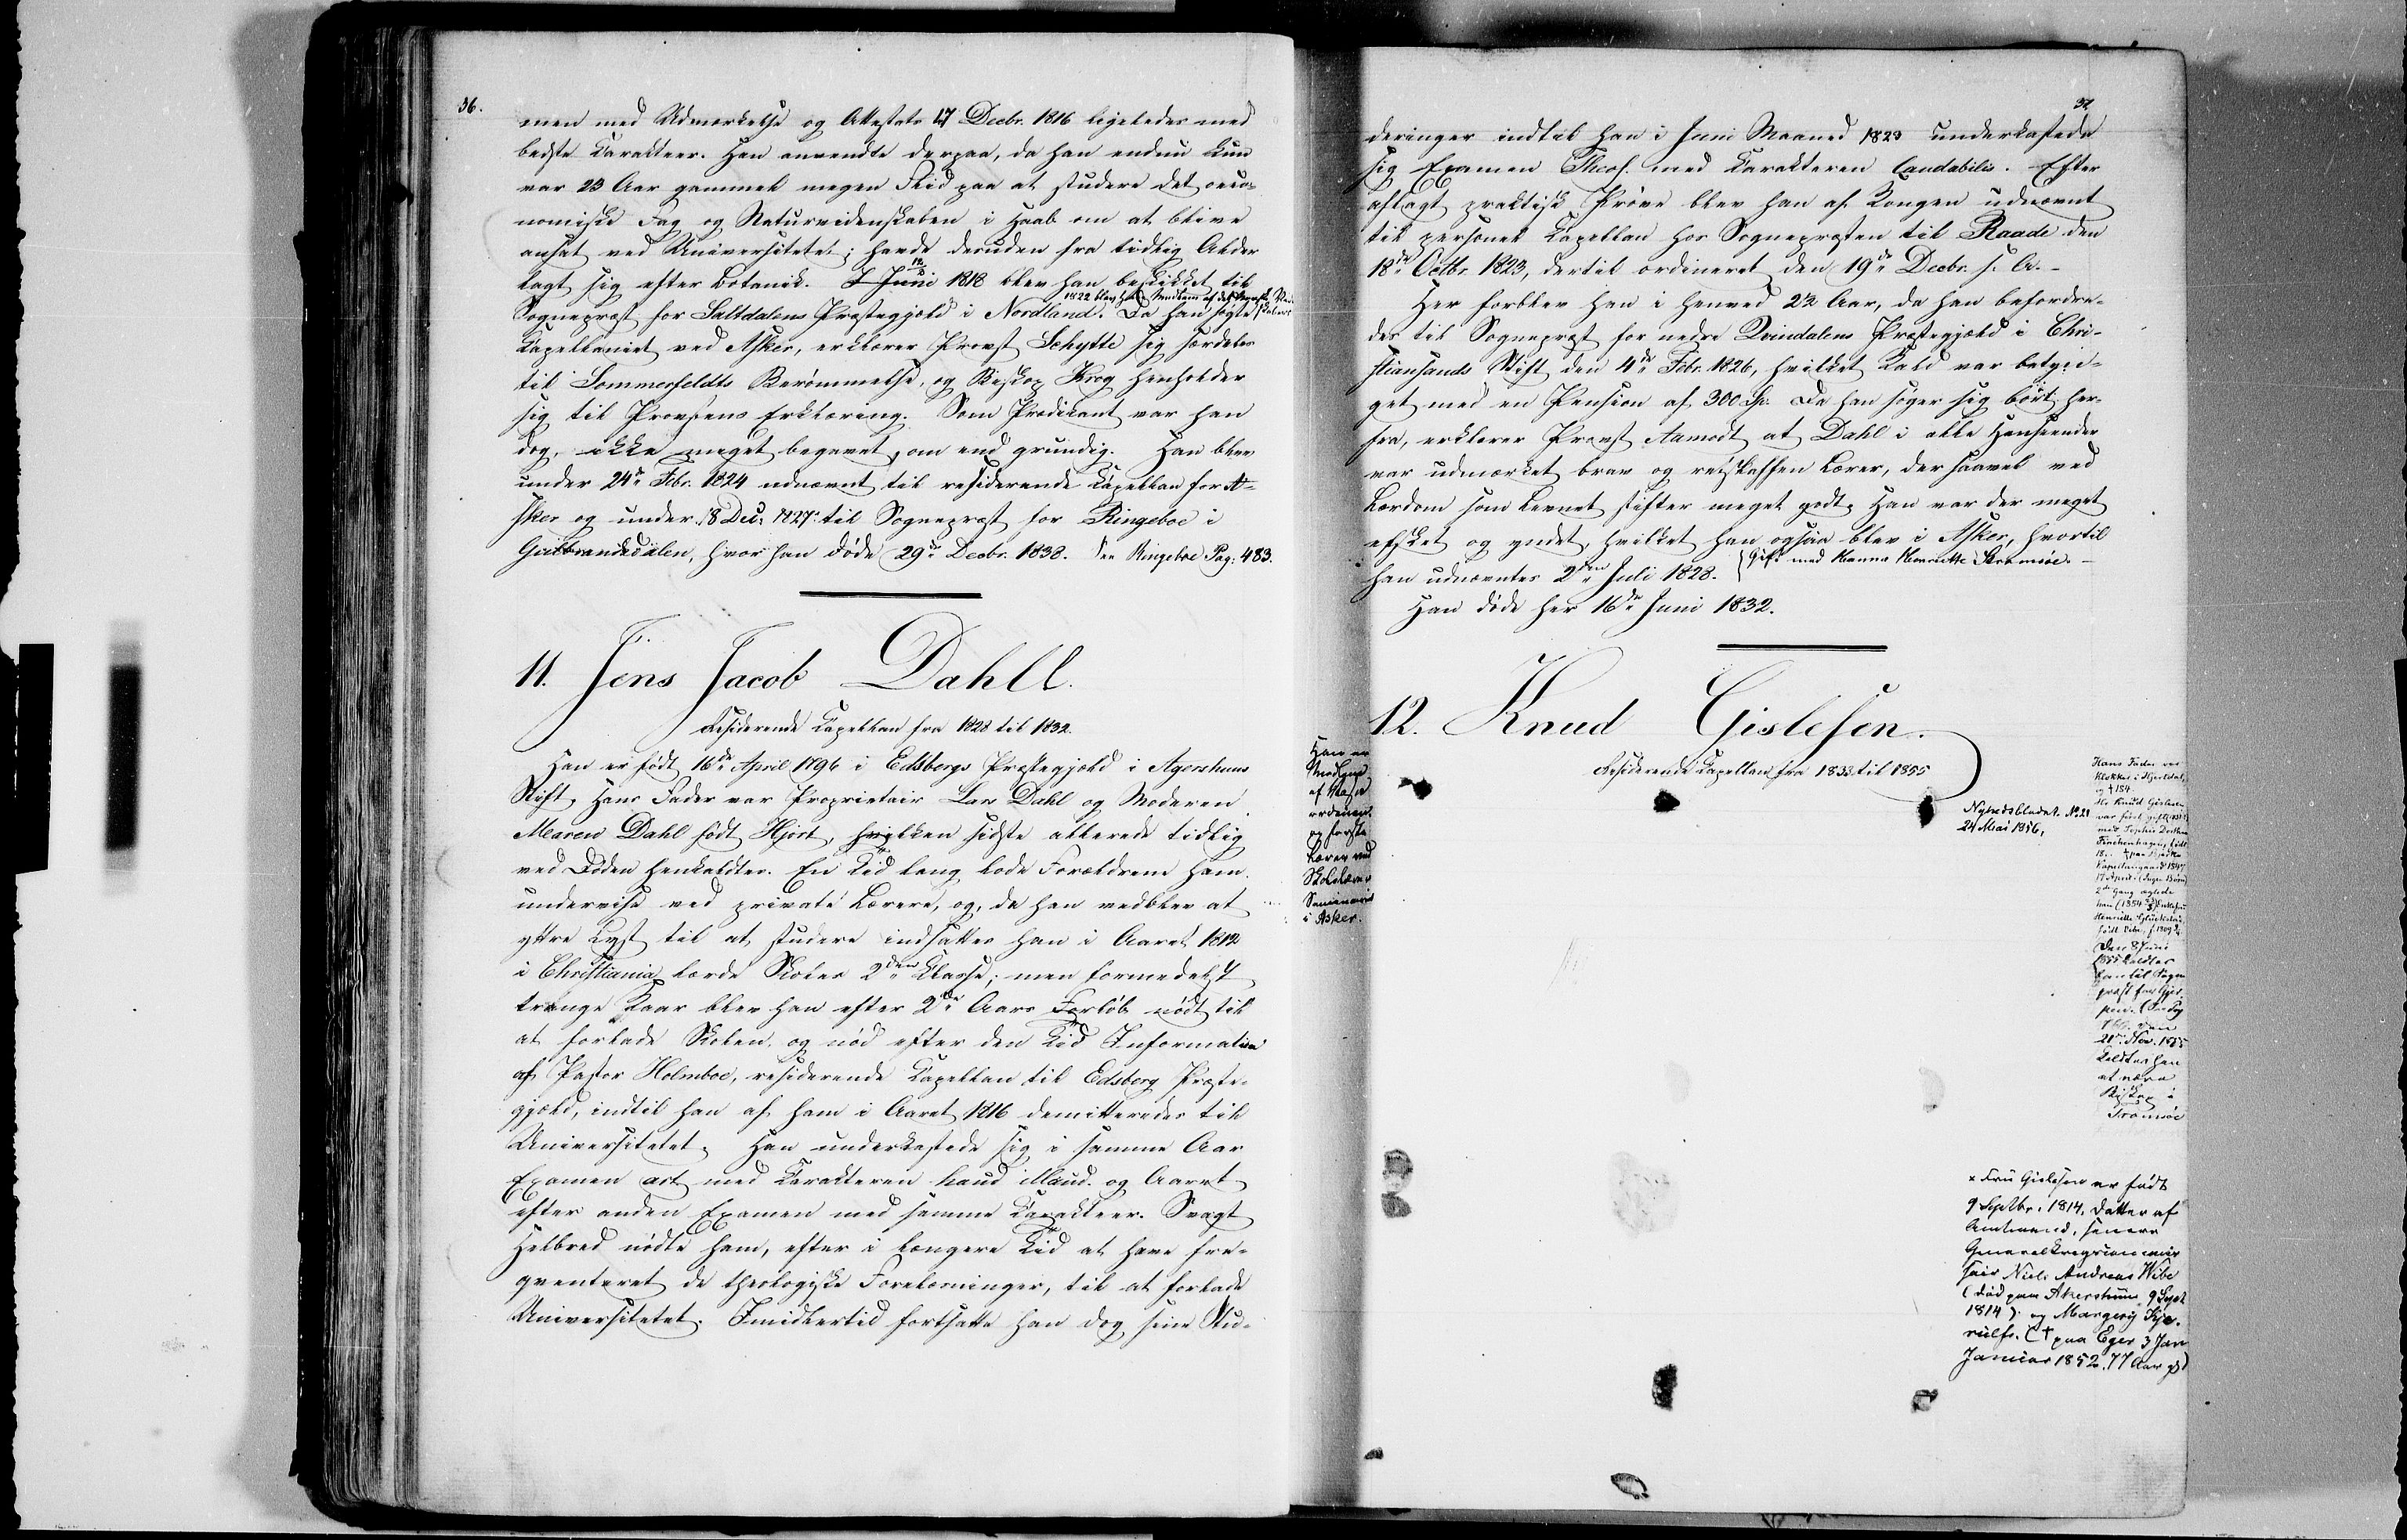 36.
men med Udmærkelse og Attestats 17 Decbr. 1816 ligeledes med
bedste Karakteer. Han anvendte derpaa, da han endnu kun
var 23 Aar gammel megen Flid paa at studere det oeco-
nomiske Fag og Naturvidenskaben i Haab om at blive
ansat ved Universitetet; havde desuden fra tidlig Alder
lagt sig efter Botanik. 12 Juni 1818 blev han beskikket til
1822 blev han Medlem af det Norske Vid.
Sognepræst for Saltdalens Præstegjæld i Nordland. Da han søgte
Kapellaniet ved Asker, erklærer Provst Schytte sig særdeles
til Sommerfeldts Berømmelse, og Biskop Krog henholder
sig til Provstens Erklæring. Som Prædikant var han
dog, ikke meget begavet, om end grundig. Han blev
under 24de Febr. 1824 udnævnt til residerende Kapellan for A-
sker og under 18 Dec. 1827 til Sognepræst for Ringeboe i
Gudbrandsdalen, hvor han døde 29de Decbr. 1838. See Ringeboe Pag: 483.
11. Jens Jacob Dahll.
Residerende Kapellan fra 1828 til 1832.
Han er født 16de April 1796 i Edsbergs Præstegjæld i Agershuus
Stift, Hans Fader var Proprietair Lar Dahl og Moderen
Maren Dahl født Hjort, hvilken sidste allerede tidlig
ved Døden henkaldtes. En Tid lang lode Forældrene ham
undervise ved private Lærere, og, da han vedblev at
yttre Lyst til at studere indsattes han i Aaret 1812
i Christiania lærde Skoles 2den Klasse; men formedelst
trange Kaar blev han efter 2de Aars Forløb nødt til
at forlade Skolen, og nød efter den Tid Information
af Pastor Holmboe, residerende Kapellan til Edsberg Præste-
gjæld, indtil han af ham i Aaret 1816 demitteredes til
Universitetet. Han underkastede sig i samme Aar
Examen art. med Karakteren haud illaud. og Aaret
efter anden Examen med samme Karakteer. Svagt
Helbred nødte ham, efter i længere Tid at have fre-
qventeret de theologiske Forelæsninger, til at forlade
Universitetet. Imidlertid fortsatte han dog sine Stu-
37
deringer indtil han i Juni Maaned 1823 underkastede
sig Examen Theol. med Karakteren Laudabilis. Efter
aflagt praktisk Prøve blev han af Kongen udnævnt
til personel Kapellan hos Sognepræsten til Raade den
18de Octbr. 1823, dertil ordineret den 19de Decbr. s. A. -
Her forblev han i henved 2½ Aar, da han befordre-
des til Sognepræst for nedre Qvindalens Præstegjæld i Chri-
stiansands Stift den 4de Febr. 1826, hvilket Kald var betyn-
get med en Pension af 300 Sp. Da han søger sig bort her-
fra, erklærer Provst Aamodt at Dahl i alle Henseender
var udmærket brav og retskaffen Lærer, der saavel ved
Lærdom som Levnet stifter meget godt; Han var der meget
elsket og yndet, hvilket han ogsaa blev i Asker, hvortil
han udnævntes 2den Juli 1828. (Gift med Hanna Henriette Stromsöe. -
Han døde her 16de Juni 1832.
12. Knud Gislesen.
Residerende Kapellan fra 1833 til 1855
Han er
Medlem
af Vasa
ordenen
og første
Lærer ved
Skolelærer
Seminariet
i Asker.
Nyhedsbladet. No. 21
24 Mai 1856,
Hans Fader var
Klokker i Hjertdal,
og † 184
Hr. Knud Gislesen
var først gift
med Sophie Dorthea
Finckenhagen, født
18..
Kapellangaard 1847
17 April. (Ingen Børn)
2den Gang ægtede
han (1854
Henriette
Den 8 Juni
1855 kaldtes
han til Sogne-
præst for Gjer-
pen.
den
20de Nov. 1855
kaldtes han
at være
Biskop i
Tromsöe
× Fru Gislesen er født
9 Septbr. 1814, Datter af
Amtmand, senere
Generalkrigscommis-
sair Niels Andreas Wibe
(død paa Akershuus 9 Sept
1814) og Margery Kje-
rulf. († paa Eger 3 Jan
Januar 1852, 77 Aar gl)